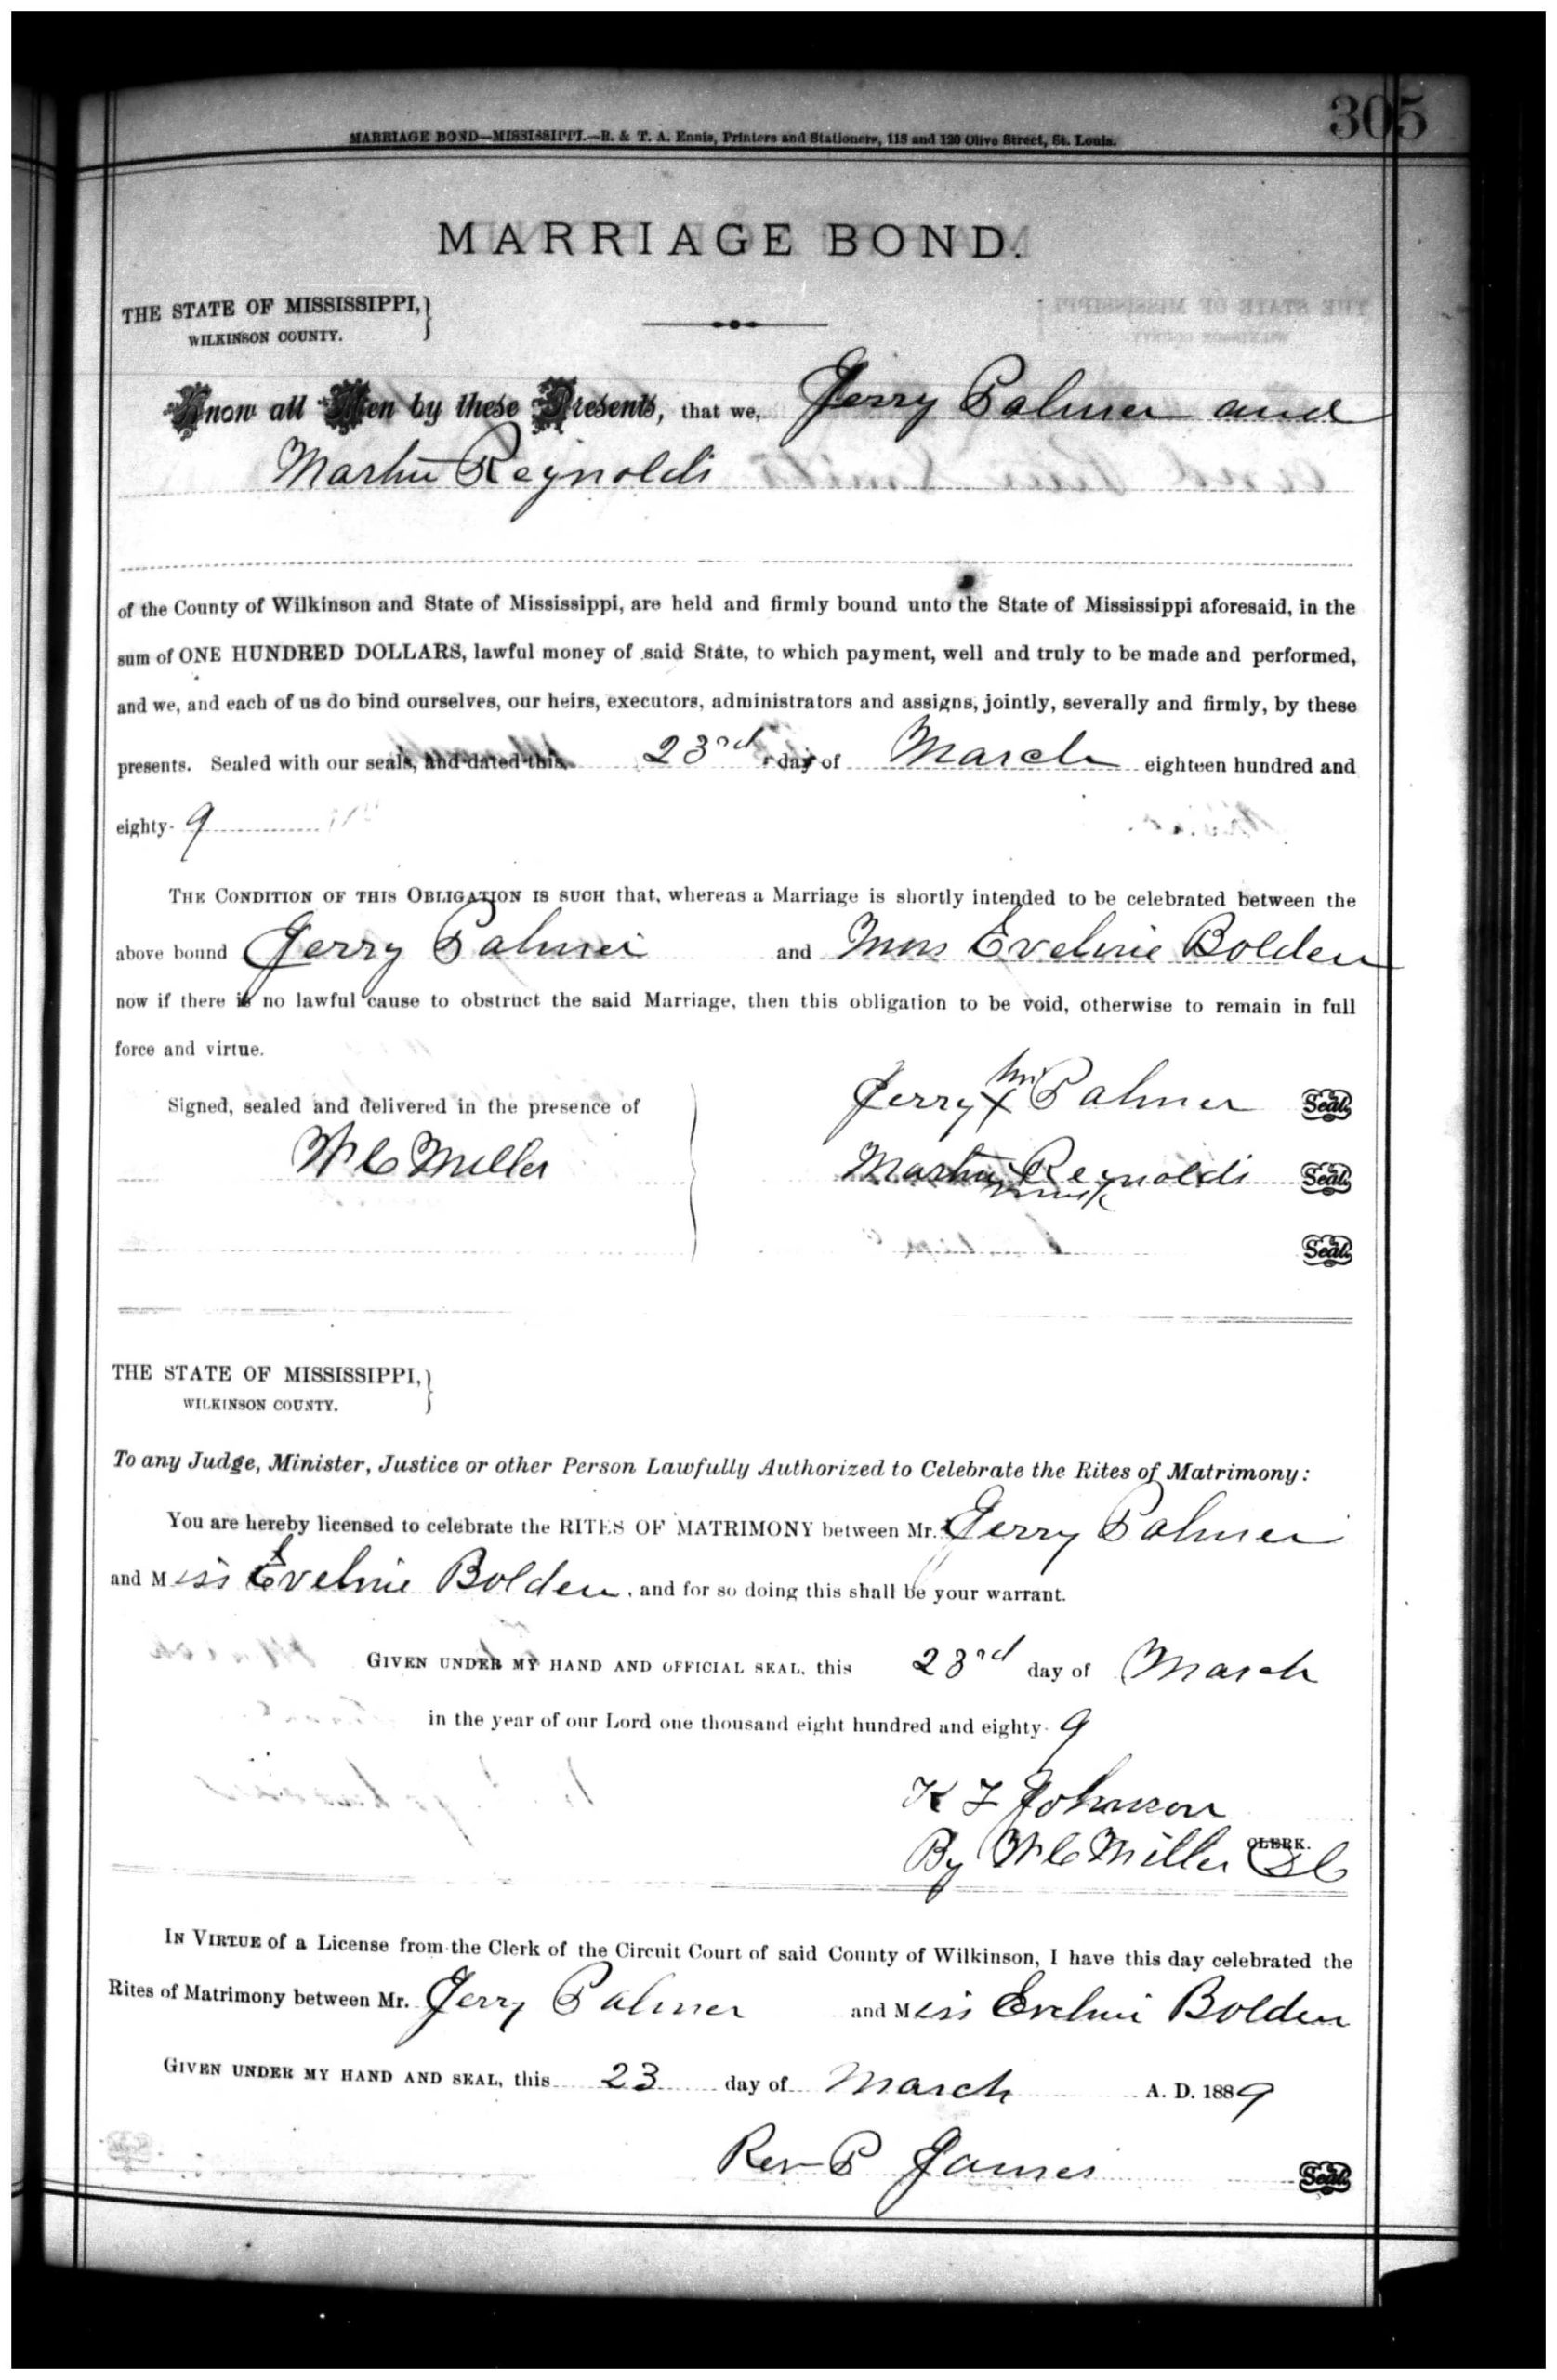 305
MARRIAGE BOND—MISSISSIPPI.—B. & T. A. Ennis, Printers and Stationers, 118 and 120 Olive Street, St. Louis.
MARRIAGE BOND.
THE STATE OF MISSISSIPPI,
WILKINSON COUNTY.
Know all Men by these Presents, that we, Jerry Palmer and
Martin Reynolds
of the County of Wilkinson and State of Mississippi, are held and firmly bound unto the State of Mississippi aforesaid, in the
sum of ONE HUNDRED DOLLARS, lawful money of said State, to which payment, well and truly to be made and performed,
and we, and each of us do bind ourselves, our heirs, executors, administrators and assigns, jointly, severally and firmly, by these
presents. Sealed with our seals, and dated this 23rd day of March eighteen hundred and
eighty- 9
THE CONDITION OF THIS OBLIGATION IS SUCH that, whereas a Marriage is shortly intended to be celebrated between the
above bound Jerry Palmer and Miss Eveline Bolden
now if there is no lawful cause to obstruct the said Marriage, then this obligation to be void, otherwise to remain in full
force and virtue.
Signed, sealed and delivered in the presence of
W C Miller
Jerry his X Palmer Seal.
Martin Reynolds Seal.
mark
Seal.
THE STATE OF MISSISSIPPI,
WILKINSON COUNTY.
To any Judge, Minister, Justice or other Person Lawfully Authorized to Celebrate the Rites of Matrimony:
You are hereby licensed to celebrate the RITES OF MATRIMONY between Mr. Jerry Palmer
and Miss Eveline Bolden, and for so doing this shall be your warrant.
GIVEN UNDER MY HAND AND OFFICIAL SEAL, this 23rd day of March
in the year of our Lord one thousand eight hundred and eighty- 9
K F Johnson
CLERK.
By W C Miller DC
IN VIRTUE of a License from the Clerk of the Circuit Court of said County of Wilkinson, I have this day celebrated the
Rites of Matrimony between Mr. Jerry Palmer and Miss Eveline Bolden
GIVEN UNDER MY HAND AND SEAL, this 23 day of March A. D. 1889
Rev P James Seal.